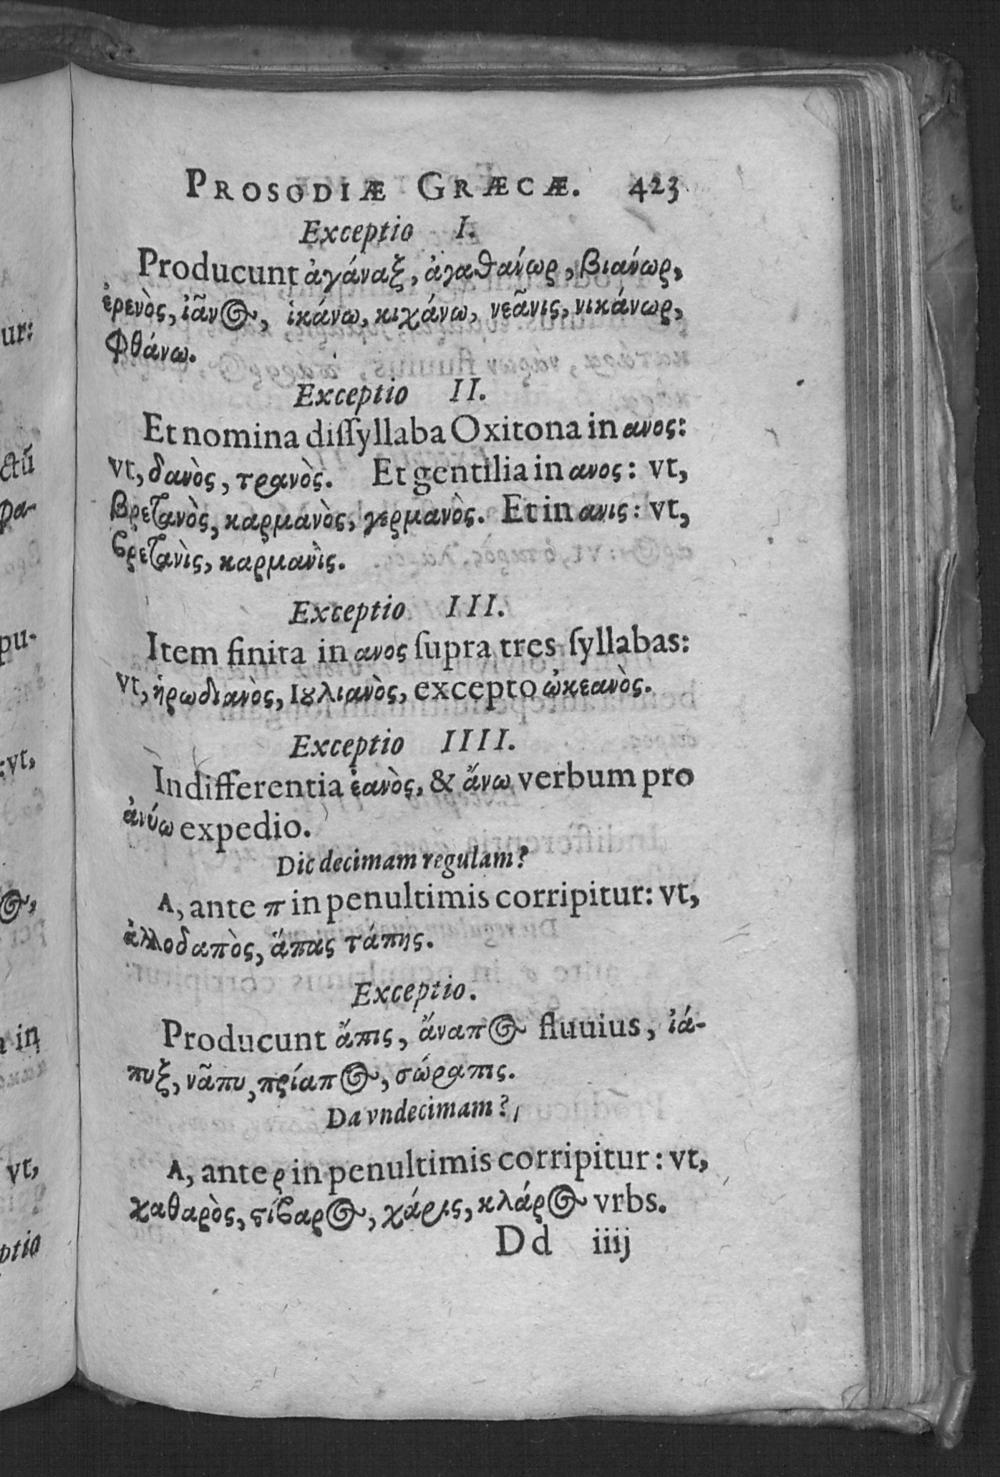 PROSODIÆ GRÆCÆ. 423
Exceptio I.
Producunt ἀγάναξ, ἀγαθάνωρ, βιάνωρ,
ἐρενὸς, ἰᾶνος, ἱκάνω, κιχάνω, νεᾶνις, νικάνωρ,
φθάνω.
Exceptio II.
Et nomina diſſyllaba Oxitona in ανος:
vt, δανὸς, τρανὸς. Et gentilia in ανος: vt,
βρετανὸς, καρμανὸς, γερμανὸς. Et in ανις: vt,
βρετανὶς, καρμανὶς.
Exceptio III.
Item finita in ανος ſupra tres ſyllabas:
vt, ἡρωδιανὸς, Ιουλιανὸς, excepto ὠκεανὸς.
Exceptio IIII.
Indifferentia ἑανὸς, & ἄνω verbum pro
ἀνύω expedio.
Dic decimam regulam?
Α, ante π in penultimis corripitur: vt,
ἀλλοδαπὸς, ἅπας τάπης.
Exceptio.
Producunt ἄπις, ἄναπος fluuius, ἰά-
πυξ, νᾶπυ, πρίαπος, σώραπις.
Da vndecimam?
Α, ante ρ in penultimis corripitur: vt,
καθαρὸς, στίβαρος, χάρις, κλάρος vrbs.
Dd iiij
ur:
ctũ
ρα-
pu-
:vt,
ος,
in
vt,
ptio